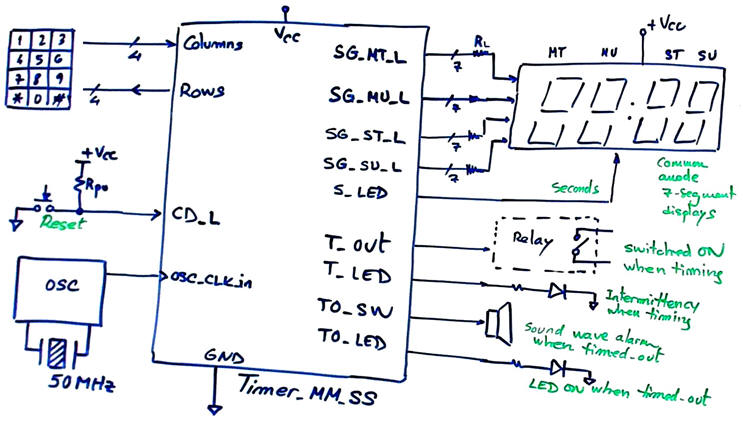 1 2 3
4 5 6
7 8 9
* 0 #
4
Columns
4
Rows
+Vcc
Rpu
Reset
CD_L
OSC
OSC_CLK_in
50MHz
Vcc
GND
Timer_MM_SS
SG_MT_L
SG_MU_L
SG_ST_L
SG_SU_L
S_LED
T_OUT
T_LED
TO_SW
TO_LED
7
RL
7
7
7
+Vcc
MT MU ST SU
Seconds
Common
anode
7-segment
displays
Relay
switched ON
when timing
Intermittency
when timing
Sound wave alarm
when timed_out
LED ON when timed_out